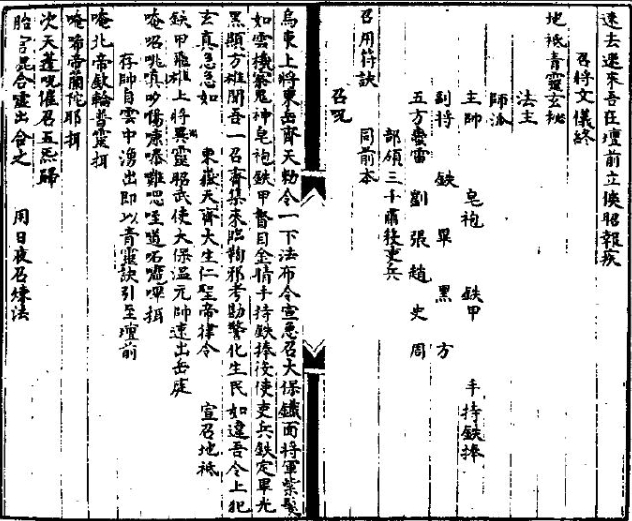 速去速來喜在壇前立俟昭報疾
召將文儀終
地祇青靈玄秘
法主
師派
主帥 皂袍 鉄甲 手持鉄捧
副將 鉄 畢 黑 方
五方蠻雷 劉 張 趙 史 周
部領三十萬後吏兵
召用符訣 同前本
召咒
烏東上將東岳齊天勅令一下法布令宣急召大保鐵面將軍紫髮
如雲機鬼神皂袍鉄甲督目金睛手持鉄捧役使吏兵鉄定畢光
黑顯方雄聞吾一召齊集來臨鞫邪考勘警化生民如違吾令上犯
玄真急急如 東嶽天齊大生仁聖帝律令 宣召地祇
鉄甲飛雄上將翼靈昭武使大保温元帥速出岳庭
存帥自雲中湧出即以青靈訣引至壇前
唵北帝欽輪普靈揖
唵唏帝蘭陀耶揖
次天蓬咒催召五炁歸
胎宮混合靈出合之 用日夜召煉法